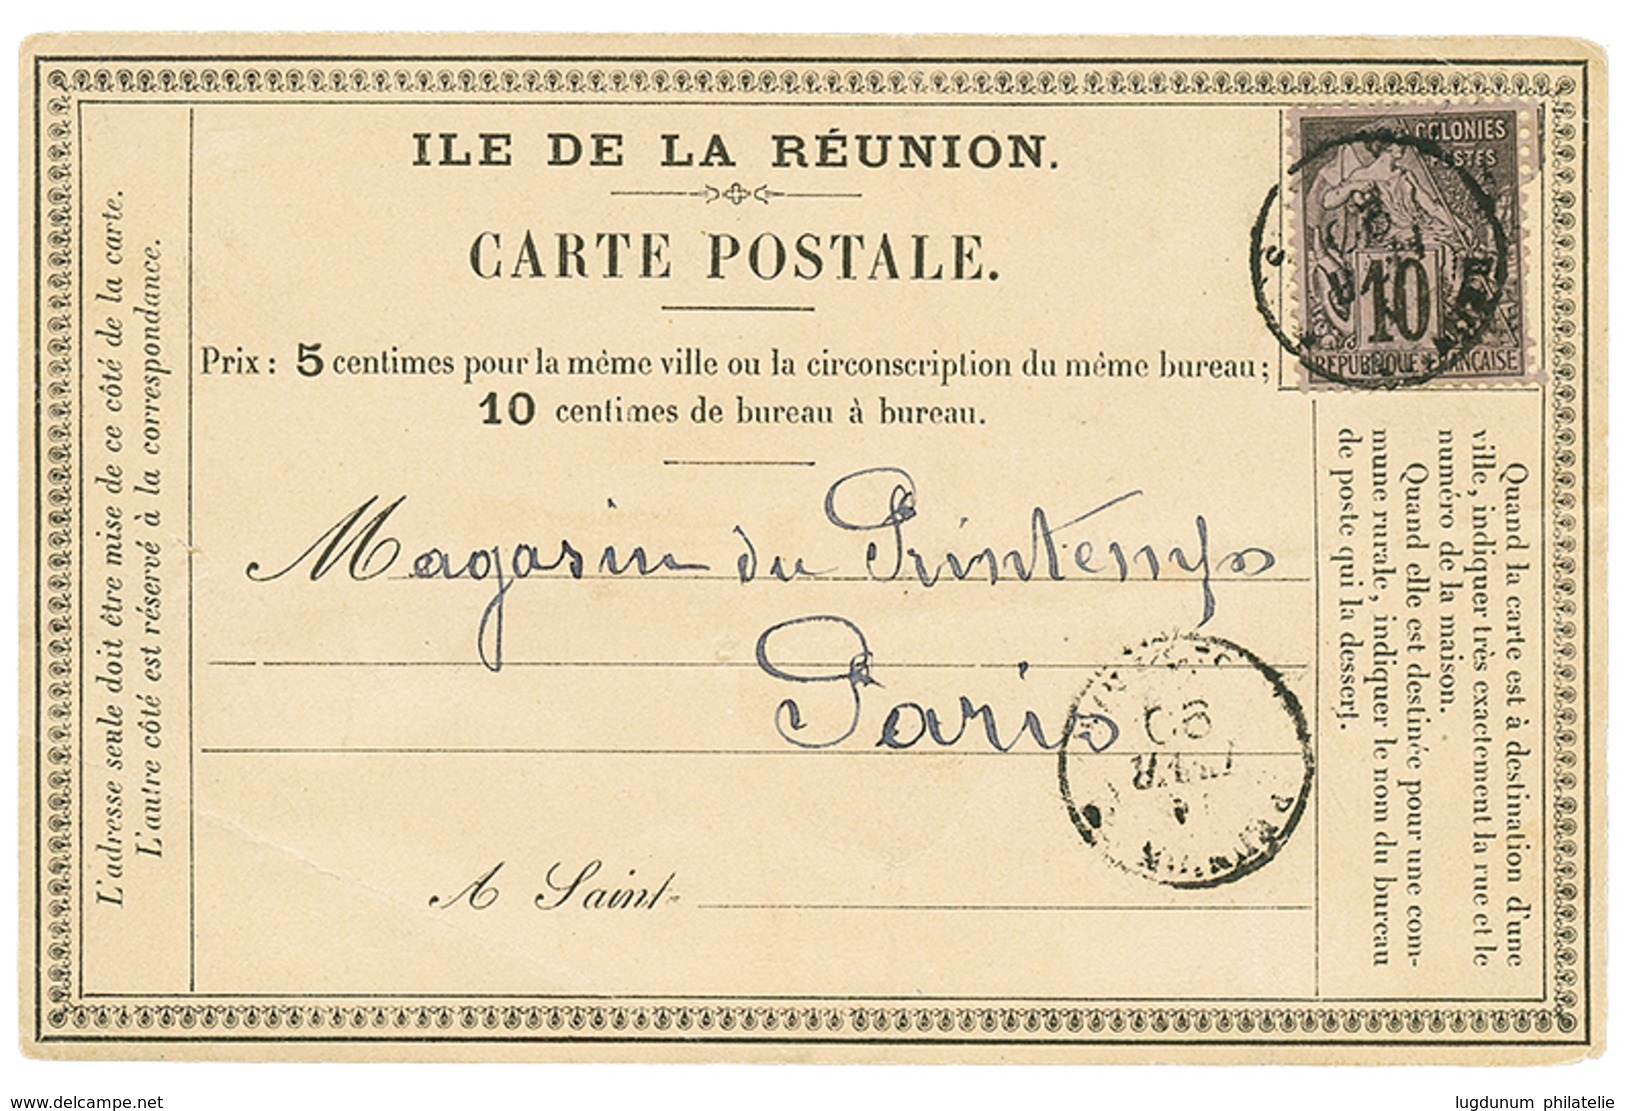 ILE DE LA RÉUNION.
CARTE POSTALE.
Prix : 5 centimes pour la même ville ou la circonscription du même bureau;
10 centimes de bureau à bureau.
COLONIES
POSTES
10
RÉPUBLIQUE FRANÇAISE
L'adresse seule doit être mise de ce côté de la carte.
L'autre côté est réservé à la correspondance.
Magasin du Printemps
Paris
A Saint-
Quand la carte est à destination d'une
ville, indiquer très exactement la rue et le
numéro de la maison.
Quand elle est destinée pour une com-
mune rurale, indiquer le nom du bureau
de poste qui la dessert.
delcampe.net
lugdunum philatelie